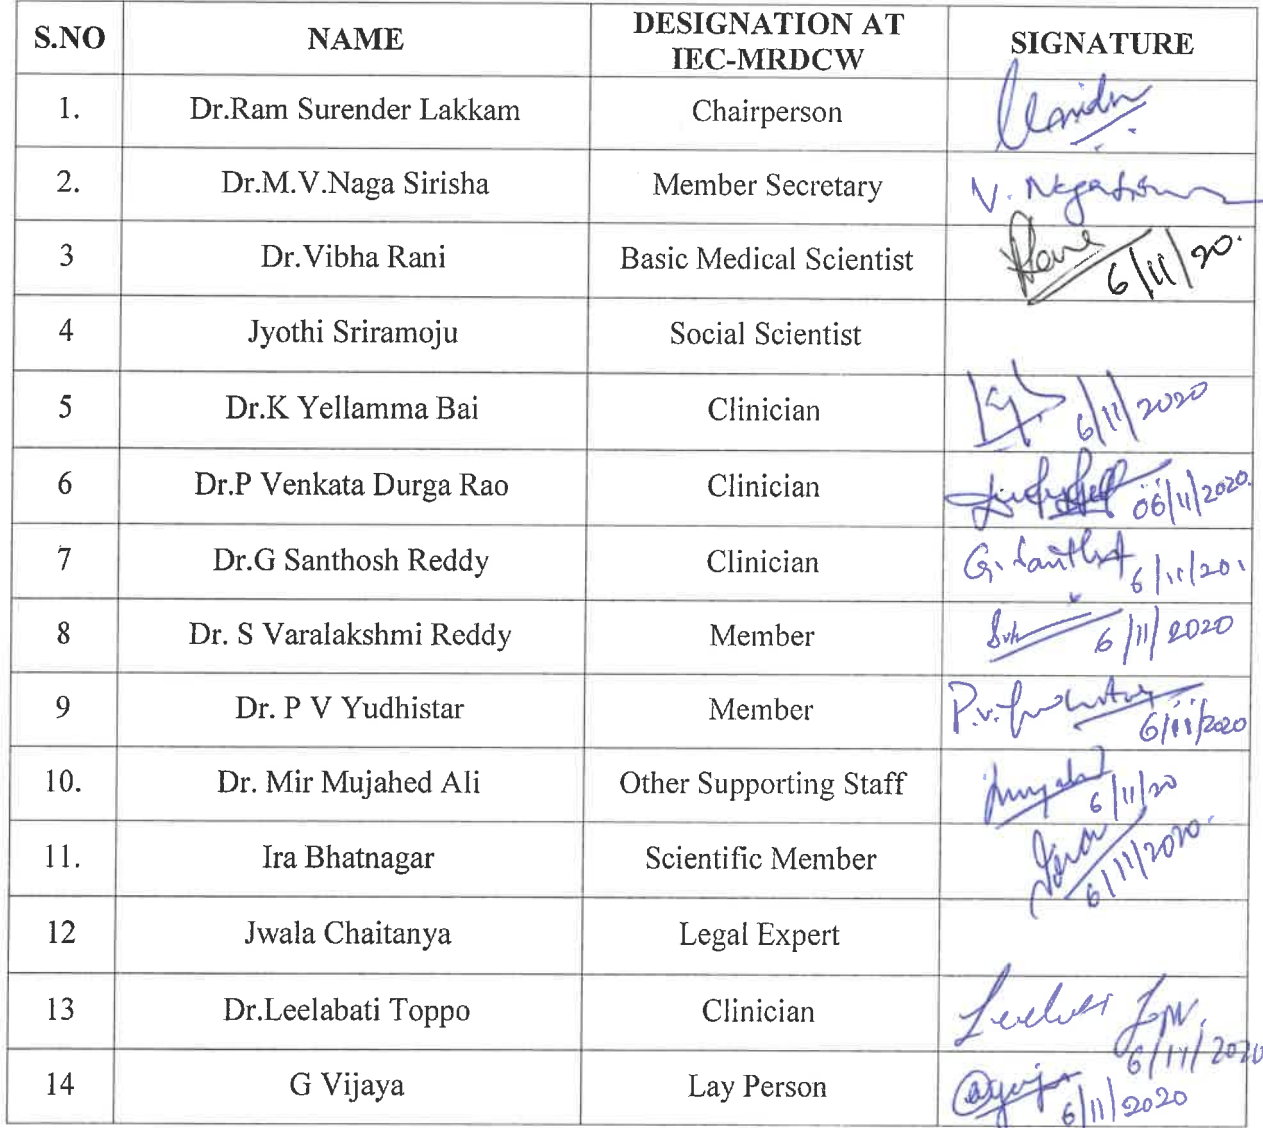 S.NO NAME DESIGNATION AT IEC-MRDCW SIGNATURE
1. Dr.Ram Surender Lakkam Chairperson
2. Dr.M.V.Naga Sirisha Member Secretary V.
3 Dr.Vibha Rani Basic Medical Scientist 6/11/20.
4 Jyothi Sriramoju Social Scientist
5 Dr.K Yellamma Bai Clinician 6/11/2020
6 Dr.P Venkata Durga Rao Clinician 06/11/2020.
7 Dr.G Santhosh Reddy Clinician G. 6/11/20.
8 Dr. S Varalakshmi Reddy Member 6/11/2020
9 Dr. P V Yudhistar Member P.V. 6/11/2020
10. Dr. Mir Mujahed Ali Other Supporting Staff 6/11/20
11. Ira Bhatnagar Scientific Member 6/11/2020.
12 Jwala Chaitanya Legal Expert
13 Dr.Leelabati Toppo Clinician 6/11/2020
14 G Vijaya Lay Person 6/11/2020